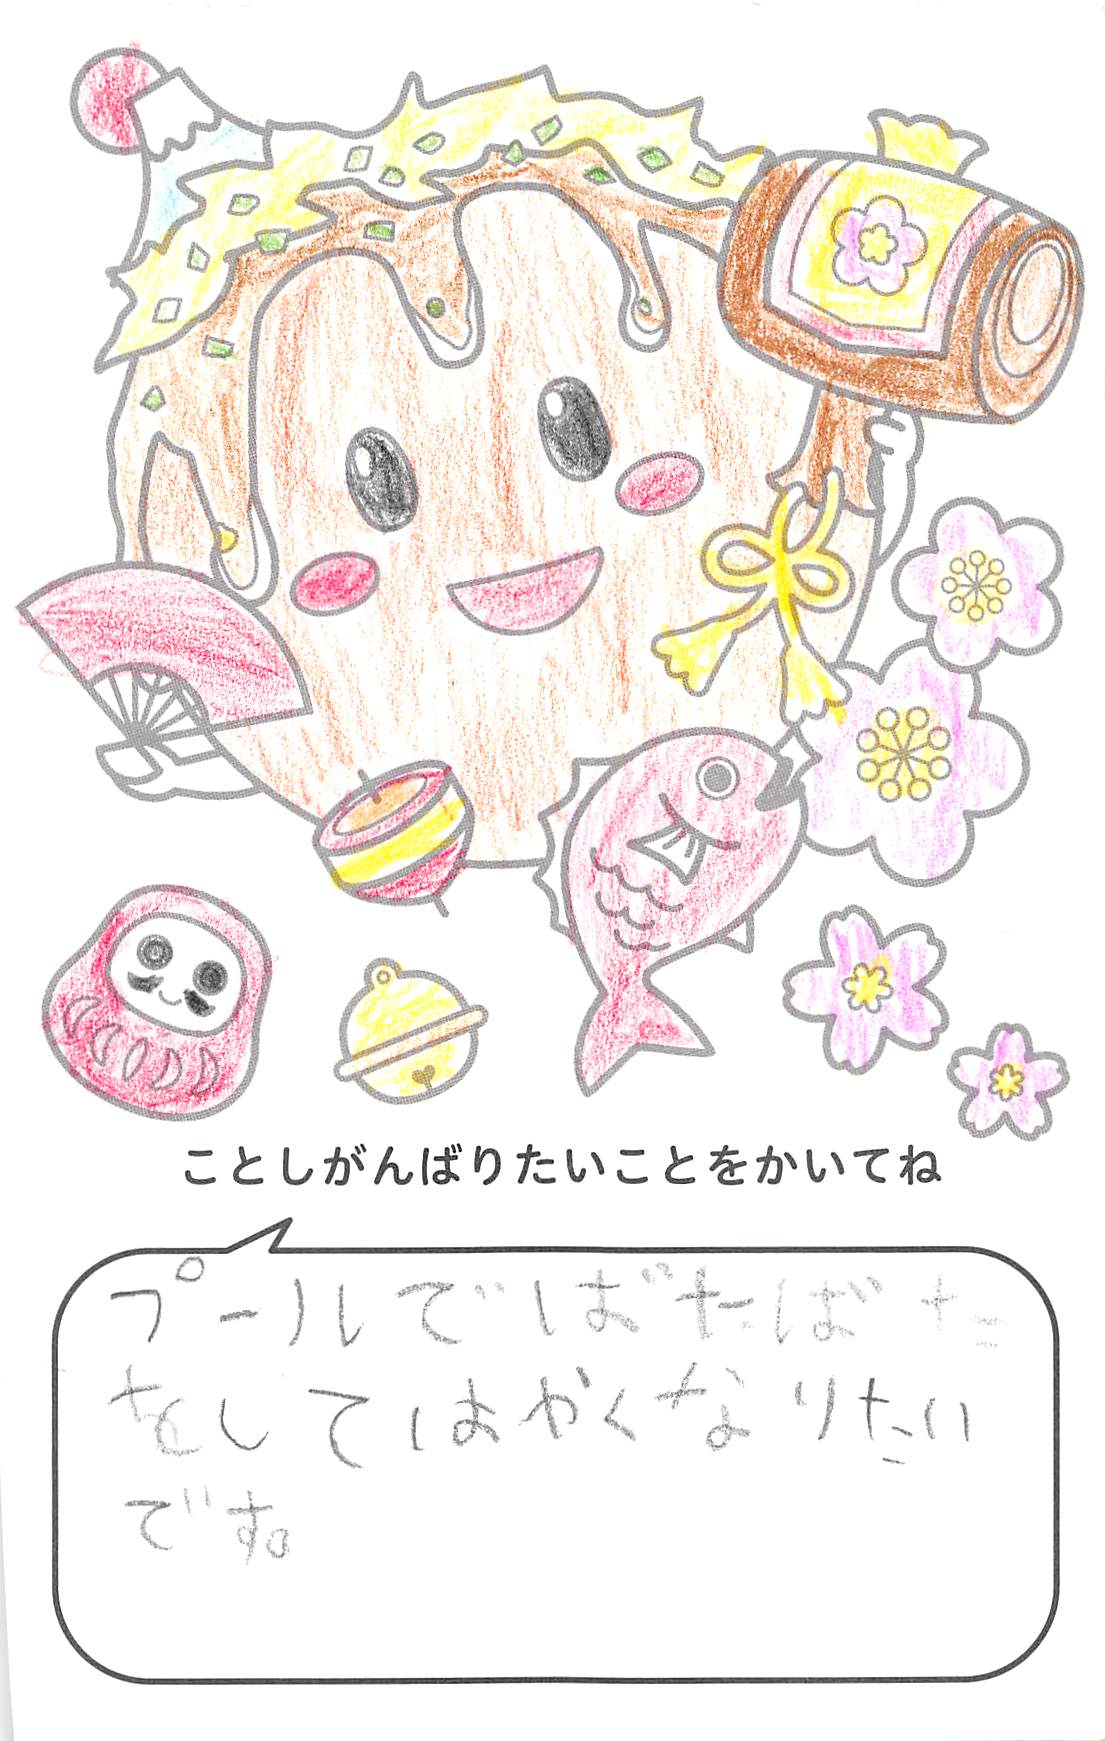 ことしがんばりたいことをかいてね
プールでばたばた
をしてはやくなりたい
です。